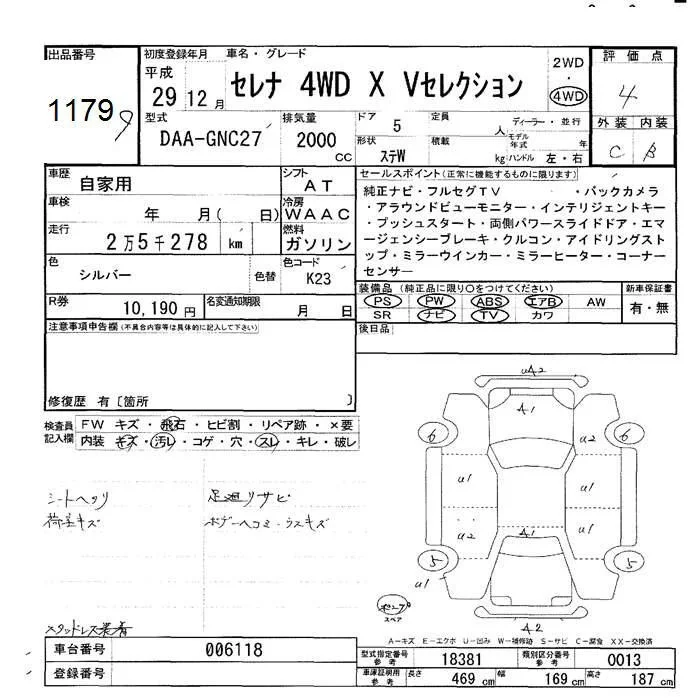 出品番号
1179
9
初度登録年月
平成
29 12月
車名・グレード
セレナ 4WD X Vセレクション
2WD
・
4WD
評価点
4
型式
DAA-GNC27
排気量
2000
cc
ドア
5
定員
人
ディーラー・並行
形状
ステW
積載
kg
モデル年式
年
ハンドル 左・右
外装 内装
C B
車歴
自家用
シフト
AT
車検
年 月( 日)
冷房
WAAC
走行
2万5千278 km
燃料
ガソリン
色
シルバー
色替
色コード
K23
R券
10,190円
名変通知期限
月 日
セールスポイント(正常に機能するものに限ります)
純正ナビ・フルセグTV ・バックカメラ
・アラウンドビューモニター・インテリジェントキー
・プッシュスタート・両側パワースライドドア・エマ
ージェンシーブレーキ・クルコン・アイドリングスト
ップ・ミラーウインカー・ミラーヒーター・コーナー
センサー
装備品(純正品に限り○をつけてください)
新車保証書
PS PW ABS エアB AW
SR ナビ TV カワ
有・無
注意事項申告欄(不具合内容等は具体的に記入して下さい)
後日品
修復歴 有〔箇所 〕
検査員
記入欄
FW キズ・飛石・ヒビ割・リペア跡・×要
内装 キズ・汚レ・コゲ・穴・スレ・キレ・破レ
シートヘタリ
荷室キズ
足廻リサビ
ボデーヘコミ・ウスキズ
スタッドレス装着
U42
A1
6
6
U2
U1
U1
U1
U2
A1
5
5
U1
スペア
A2
A-キズ E-エクボ U-凹み W-補修跡 S-サビ C-腐食 XX-交換済
車台番号
006118
登録番号
型式指定番号
参考
18381
類別区分番号
参考
0013
車庫証明用
参考
長さ
469 cm
幅
169 cm
高さ
187 cm